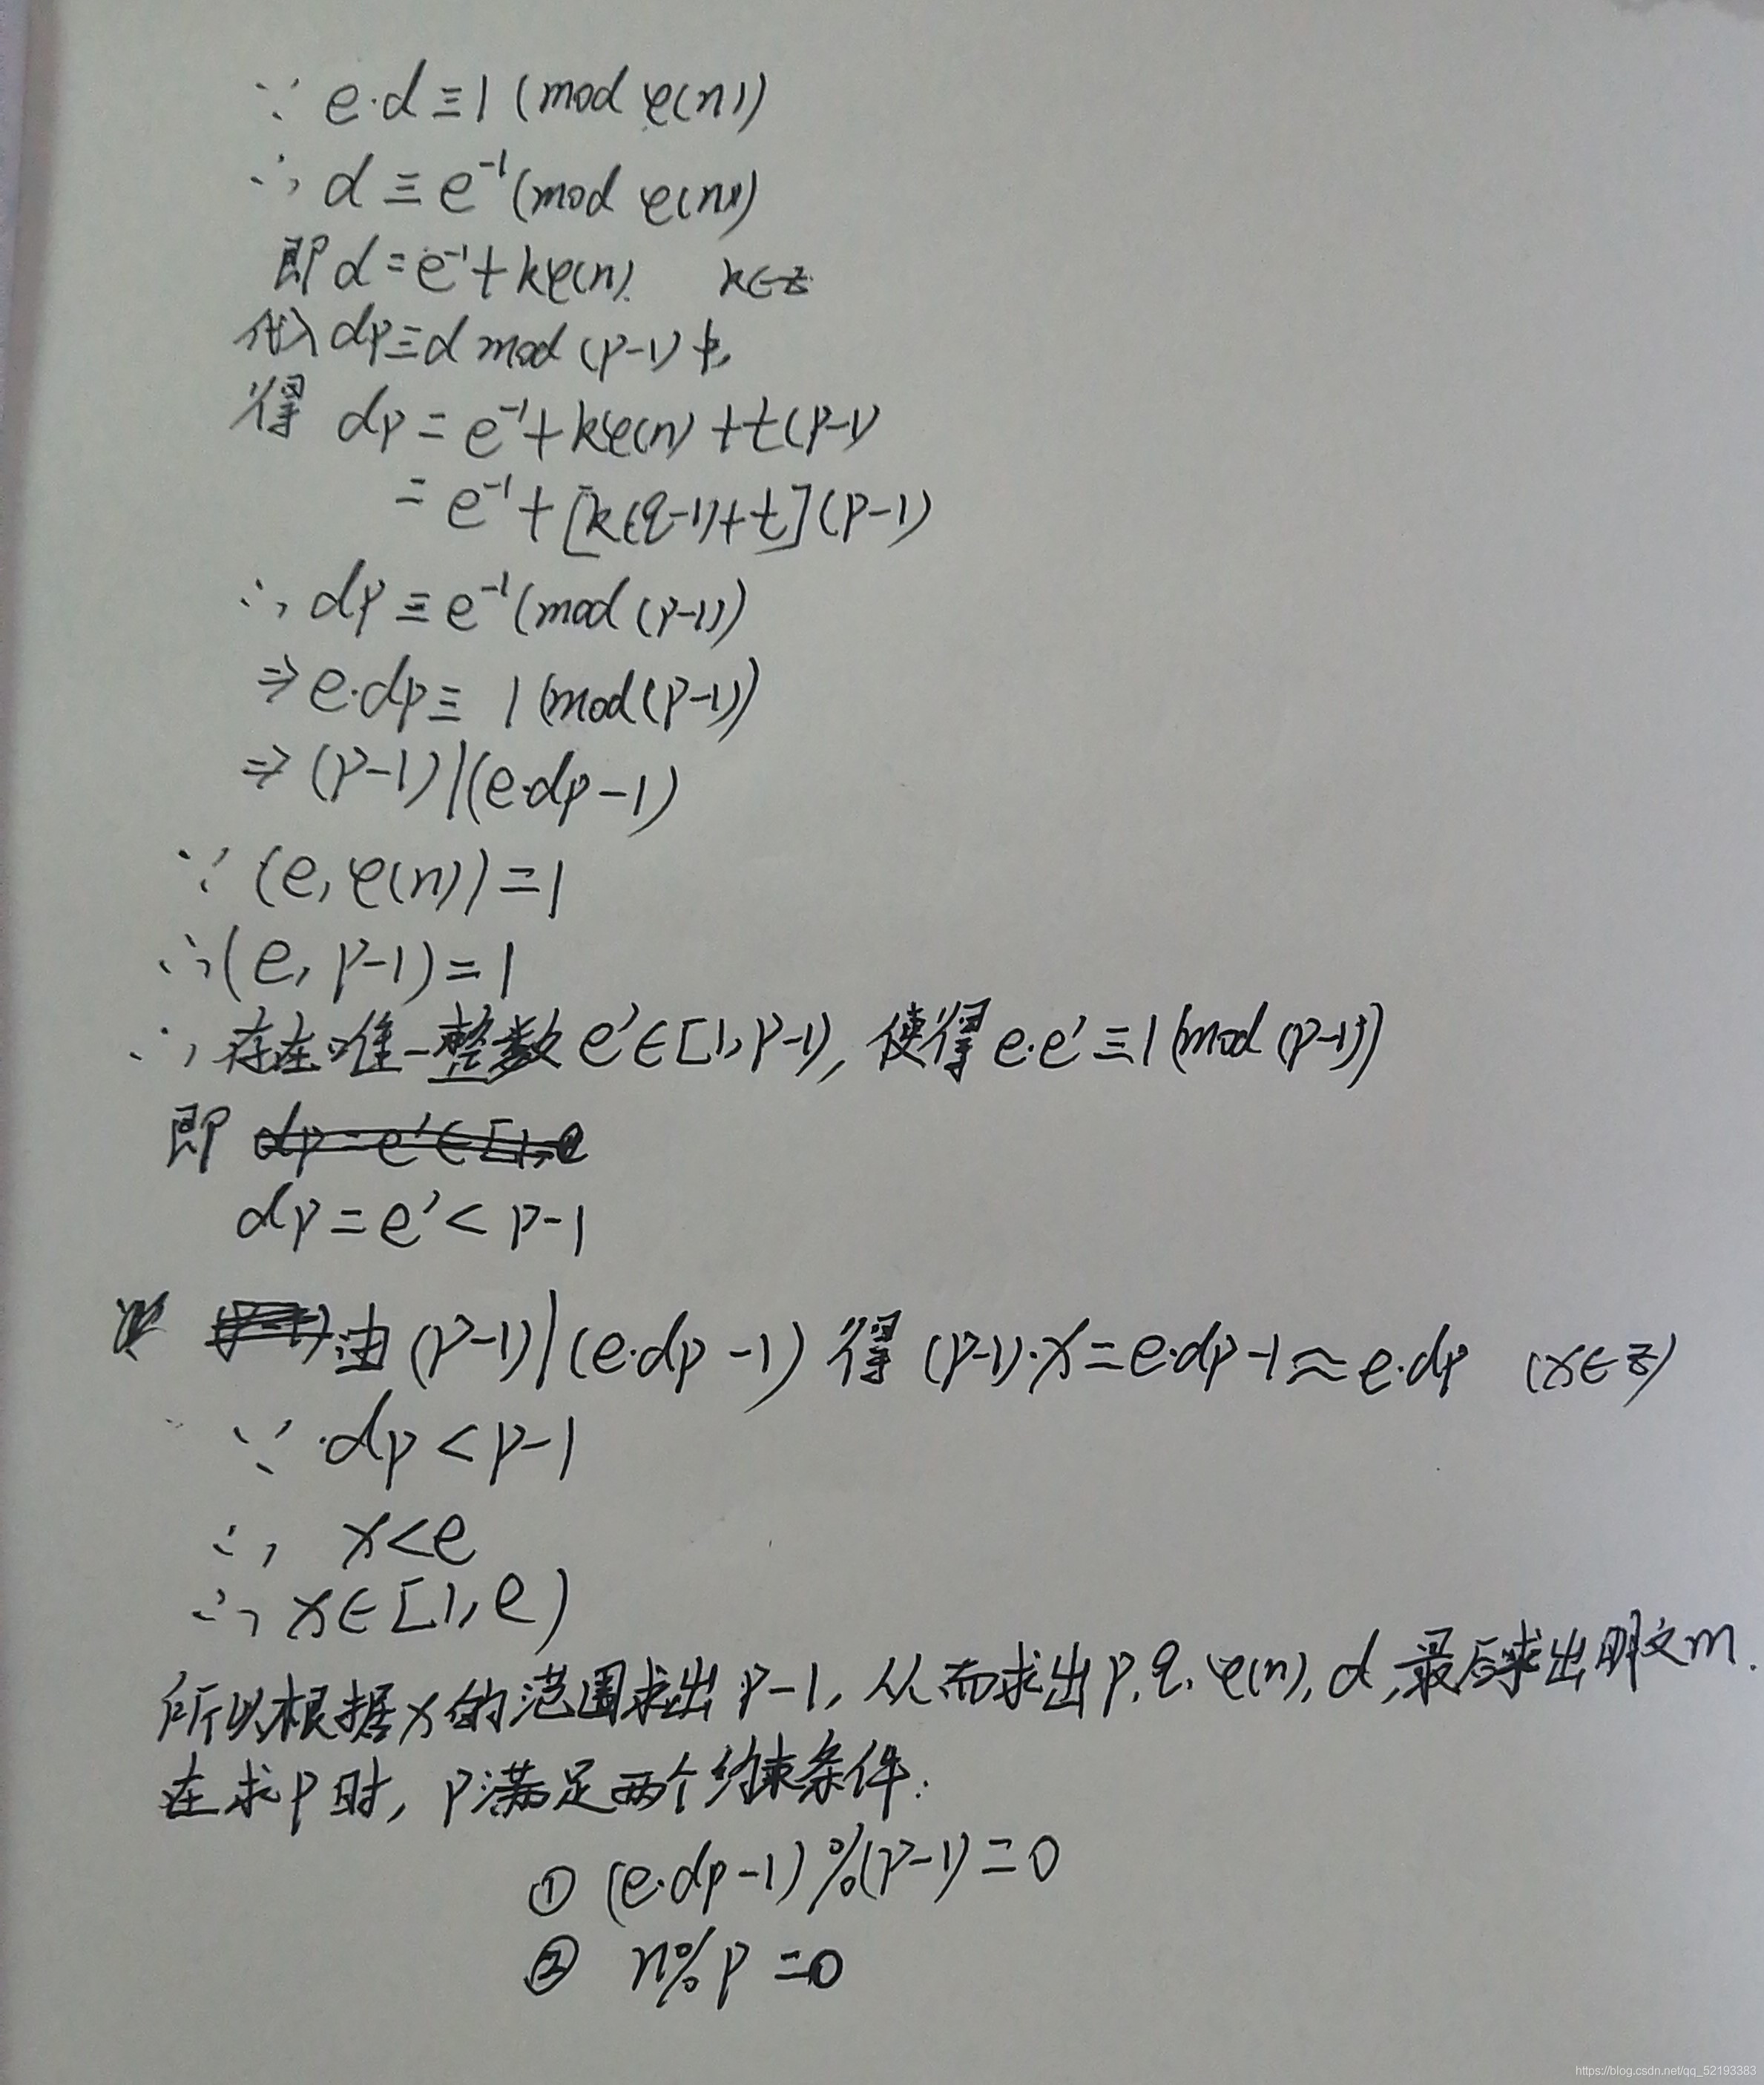 ∵ e·d≡1 (mod φ(n))
∴ d≡e⁻¹(mod φ(n))
即d=e⁻¹+kφ(n). k∈Z
代入dp≡d mod (p-1)中,
得 dp=e⁻¹+kφ(n)+t(p-1)
=e⁻¹+[k(q-1)+t](p-1)
∴ dp≡e⁻¹(mod (p-1))
⇒ e·dp≡1 (mod(p-1))
⇒ (p-1)|(e·dp-1)
∵ (e, φ(n))=1
∴ (e, p-1)=1
∴ 存在唯一整数e'∈[1,p-1), 使得e·e'≡1(mod (p-1))
即
dp=e'<p-1
由(p-1)|(e·dp-1)得(p-1)·x=e·dp-1≈e·dp (x∈Z)
∵ dp<p-1
∴ x<e
∴ x∈[1,e)
所以根据x的范围求出p-1, 从而求出p.q.φ(n),d,最后求出明文m.
在求p时, p满足两个约束条件:
① (e·dp-1)%(p-1)=0
② n%p=0
https://blog.csdn.net/qq_52193383